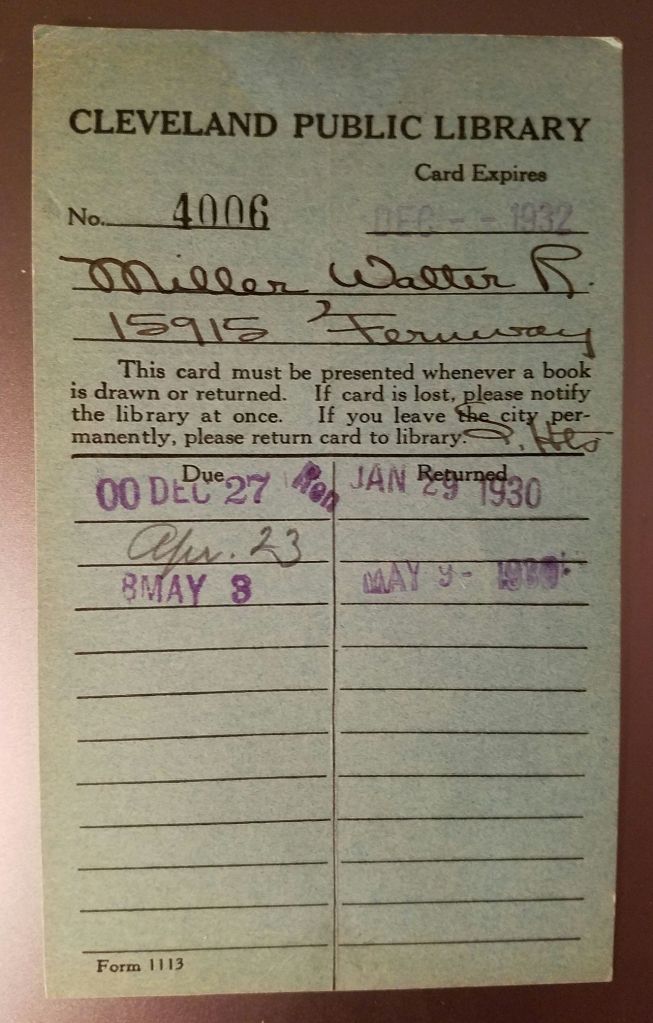 CLEVELAND PUBLIC LIBRARY
Card Expires
No. 4006 DEC - - 1932
Miller Walter R.
15915 Fernway
This card must be presented whenever a book
is drawn or returned. If card is lost, please notify
the library at once. If you leave the city per-
manently, please return card to library. S. Hts
Due Returned
00 DEC 27 Ren JAN 29 1930
Apr. 23
8MAY 3 MAY 9 - 1930
Form 1113